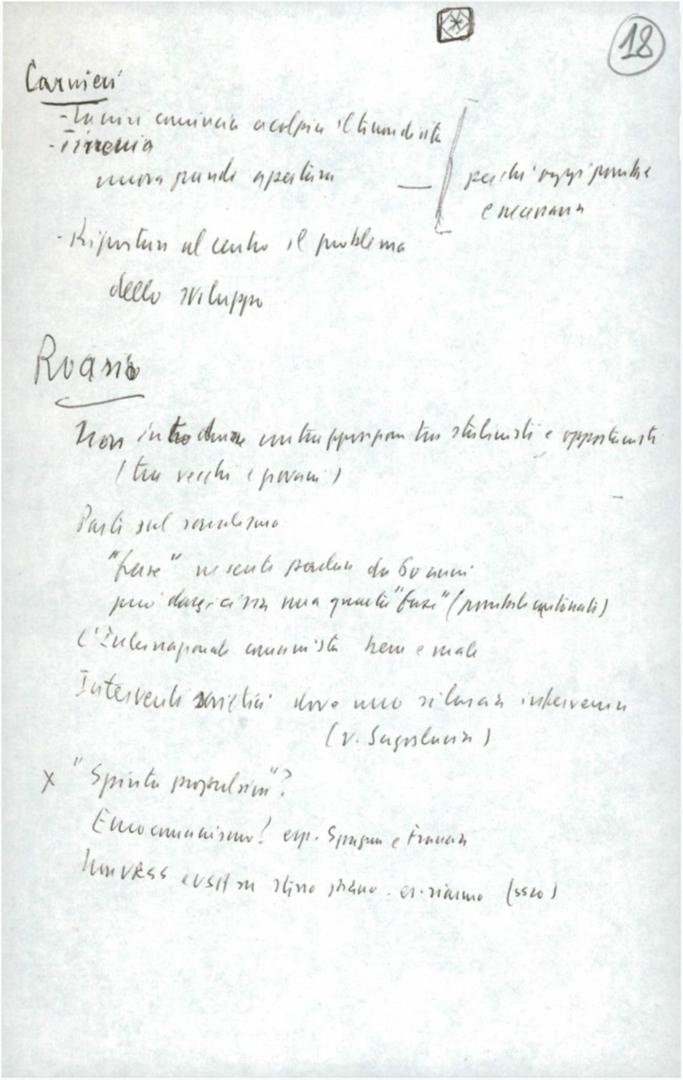 18
Carnieri
- comincia a colpire il
- Tirrenia
nuova grande apertura — perché oggi
è necessaria
- Riportare al centro il problema
dello sviluppo
Roasio
Non introdurre contrapposizioni tra stalinisti e opportunisti
(tra vecchi e giovani)
Parli sul socialismo
"fase" ne sento parlare da 60 anni
può darsi ci sia una quarta "fase" (
L'Internazionale comunista bene e male
Interventi sovietici dove uno si lascia intervenire
(v. Jugoslavia)
x "Spinta propulsiva"?
Eurocomunismo? esp. Spagna e Francia
URSS e USA su stesso piano.